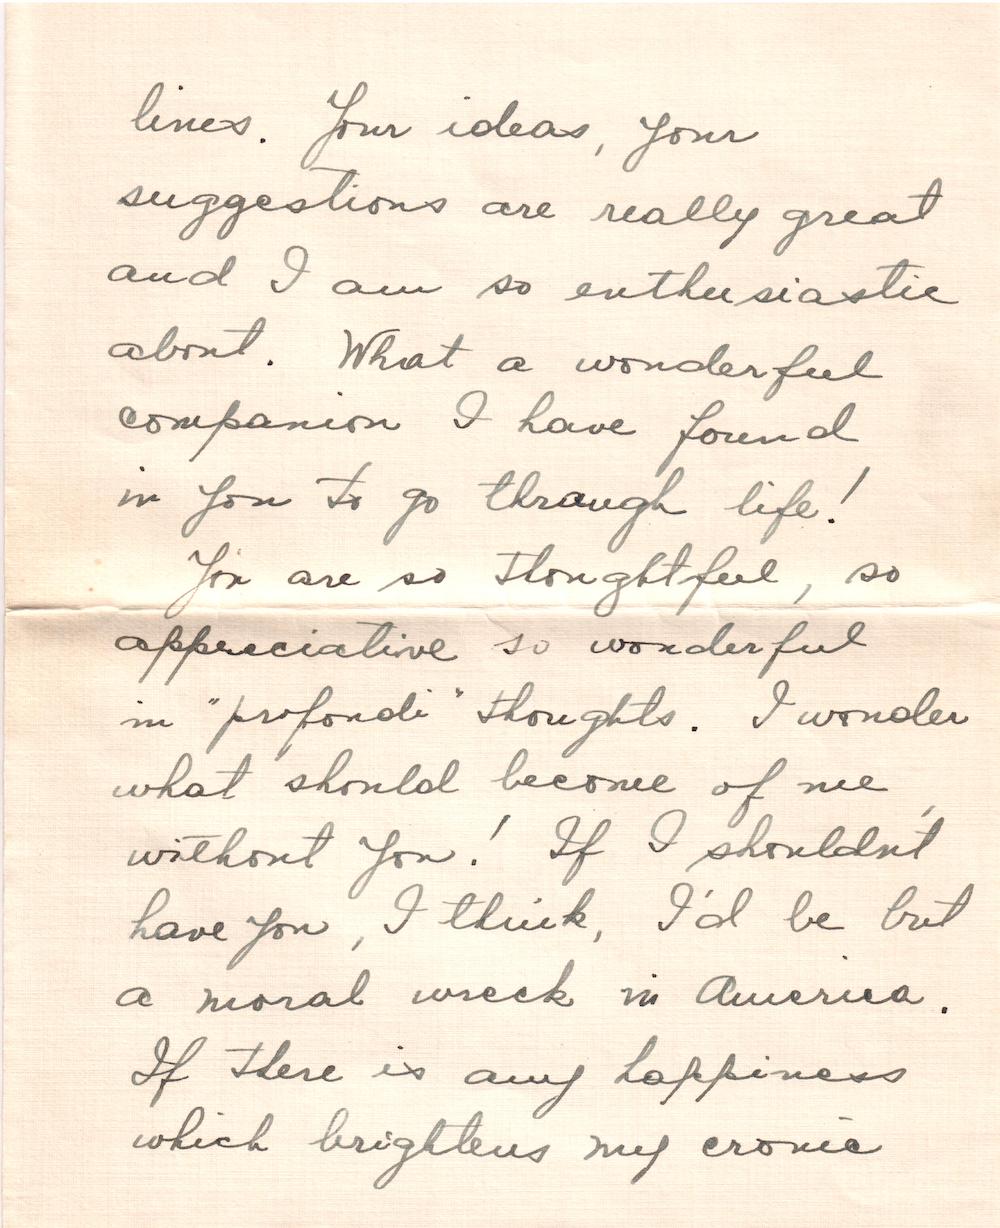 lines. Your ideas, your
suggestions are really great
and I am so enthusiastic
about. What a wonderful
companion I have found
in you to go through life!
You are so thoughtful, so
appreciative so wonderful
in "profondi" thoughts. I wonder
what should become of me,
without you! If I shouldn't
have you, I think, I'd be but
a moral wreck in America.
If there is any happiness
which brightens my cronic